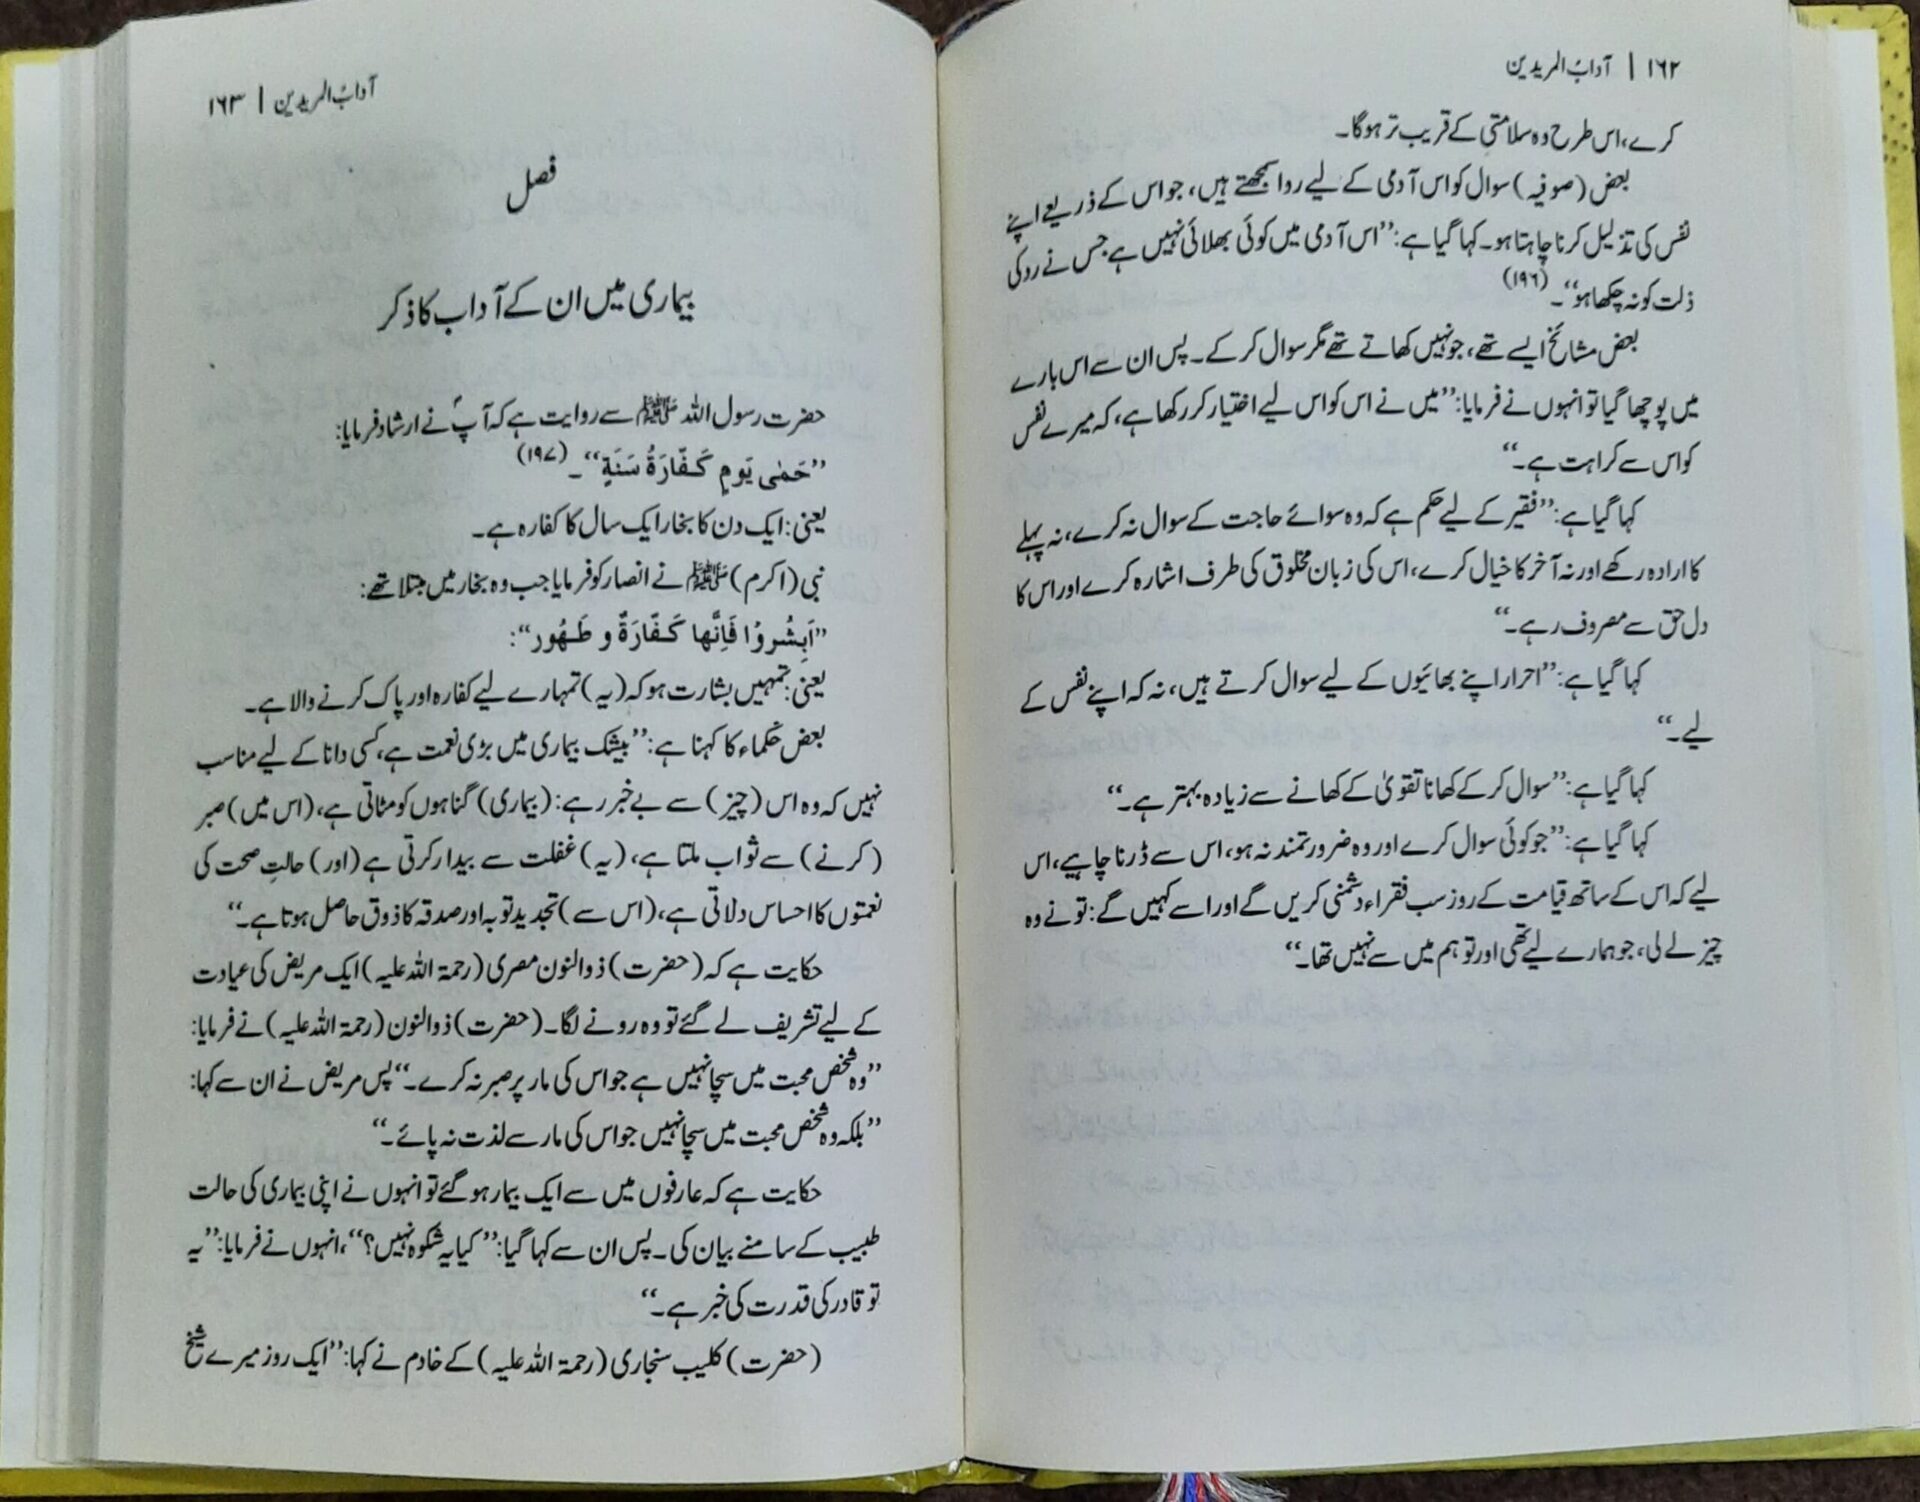 ۱۶۲ | آدابُ المریدین
کرے، اس طرح وہ سلامتی کے قریب تر ہوگا۔
بعض (صوفیہ) سوال کو اس آدمی کے لیے روا سمجھتے ہیں، جو اس کے ذریعے اپنے
نفس کی تذلیل کرنا چاہتا ہو۔ کہا گیا ہے: ”اس آدمی میں کوئی بھلائی نہیں ہے جس نے رد کی
ذلت کو نہ چکھا ہو“۔ (۱۹۶)
بعض مشائخ ایسے تھے، جو نہیں کھاتے تھے مگر سوال کر کے۔ پس ان سے اس بارے
میں پوچھا گیا تو انہوں نے فرمایا: ”میں نے اس کو اس لیے اختیار کر رکھا ہے، کہ میرے نفس
کو اس سے کراہت ہے۔“
کہا گیا ہے: ”فقیر کے لیے حکم ہے کہ وہ سوائے حاجت کے سوال نہ کرے، نہ پہلے
کا ارادہ رکھے اور نہ آخر کا خیال کرے، اس کی زبان مخلوق کی طرف اشارہ کرے اور اس کا
دل حق سے مصروف رہے۔“
کہا گیا ہے: ”احرار اپنے بھائیوں کے لیے سوال کرتے ہیں، نہ کہ اپنے نفس کے
لیے۔“
کہا گیا ہے: ”سوال کر کے کھانا تقویٰ کے کھانے سے زیادہ بہتر ہے۔“
کہا گیا ہے: ”جو کوئی سوال کرے اور وہ ضرورتمند نہ ہو، اس سے ڈرنا چاہیے، اس
لیے کہ اس کے ساتھ قیامت کے روز سب فقراء دشمنی کریں گے اور اسے کہیں گے: تو نے وہ
چیز لے لی، جو ہمارے لیے تھی اور تو ہم میں سے نہیں تھا۔“
آدابُ المریدین | ۱۶۳
فصل
بیماری میں ان کے آداب کا ذکر
حضرت رسول اللہ ﷺ سے روایت ہے کہ آپؐ نے ارشاد فرمایا:
”حَمٰی یَومٍ کَفَّارَۃُ سَنَۃٍ“۔ (۱۹۷)
یعنی: ایک دن کا بخار ایک سال کا کفارہ ہے۔
نبی (اکرم) ﷺ نے انصار کو فرمایا جب وہ بخار میں مبتلا تھے:
”اَبِشُروُا فَاِنَّھا کَفَّارَۃٌ و طَھُور“:
یعنی: تمہیں بشارت ہو کہ (یہ) تمہارے لیے کفارہ اور پاک کرنے والا ہے۔
بعض حکماء کا کہنا ہے: ”بیشک بیماری میں بڑی نعمت ہے، کسی دانا کے لیے مناسب
نہیں کہ وہ اس (چیز) سے بے خبر رہے: (بیماری) گناہوں کو مٹاتی ہے، (اس میں) صبر
(کرنے) سے ثواب ملتا ہے، (یہ) غفلت سے بیدار کرتی ہے (اور) حالتِ صحت کی
نعمتوں کا احساس دلاتی ہے، (اس سے) تجدید توبہ اور صدقہ کا ذوق حاصل ہوتا ہے۔“
حکایت ہے کہ (حضرت) ذوالنون مصری (رحمۃ اللہ علیہ) ایک مریض کی عیادت
کے لیے تشریف لے گئے تو وہ رونے لگا۔ (حضرت) ذوالنون (رحمۃ اللہ علیہ) نے فرمایا:
”وہ شخص محبت میں سچا نہیں ہے جو اس کی مار پر صبر نہ کرے۔“ پس مریض نے ان سے کہا:
”بلکہ وہ شخص محبت میں سچا نہیں جو اس کی مار سے لذت نہ پائے۔“
حکایت ہے کہ عارفوں میں سے ایک بیمار ہو گئے تو انہوں نے اپنی بیماری کی حالت
طبیب کے سامنے بیان کی۔ پس ان سے کہا گیا: ”کیا یہ شکوہ نہیں؟“، انہوں نے فرمایا: ”یہ
تو قادر کی قدرت کی خبر ہے۔“
(حضرت) کلیب سنجاری (رحمۃ اللہ علیہ) کے خادم نے کہا: ”ایک روز میرے شیخ